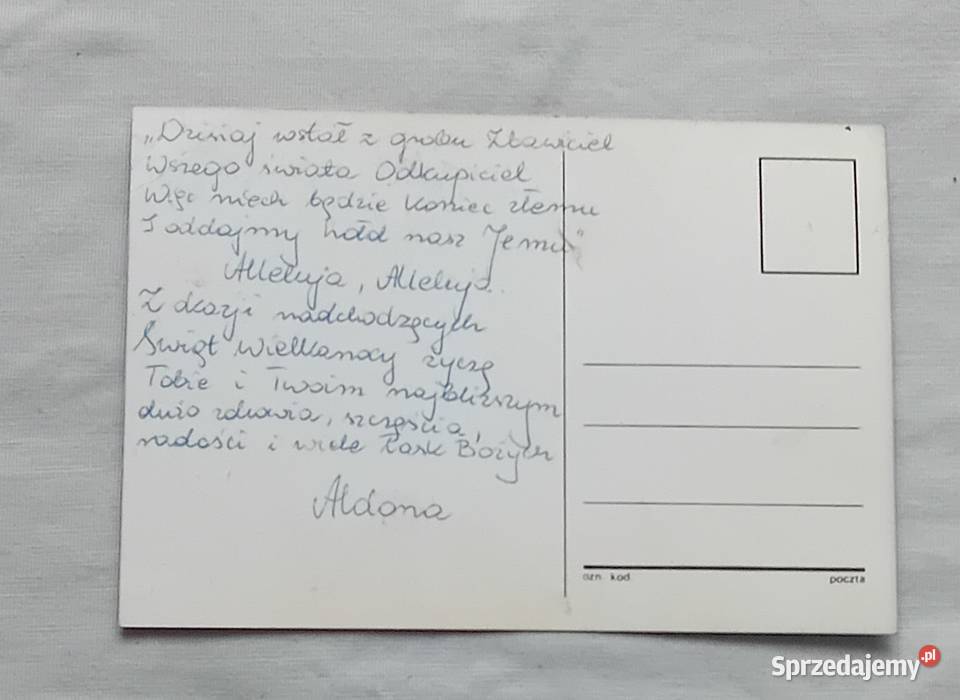 „Dzisiaj wstał z grobu Zbawiciel
Wszego świata Odkupiciel
Więc niech będzie koniec złemu
I oddajmy hołd nasz Jemu"
Alleluja, Alleluja.
Z okazji nadchodzących
Świąt Wielkanocy życzę
Tobie i Twoim najbliższym
dużo zdrowia, szczęścia,
radości i wiele Łask Bożych
Aldona
ozn. kod
poczta
Sprzedajemy.pl